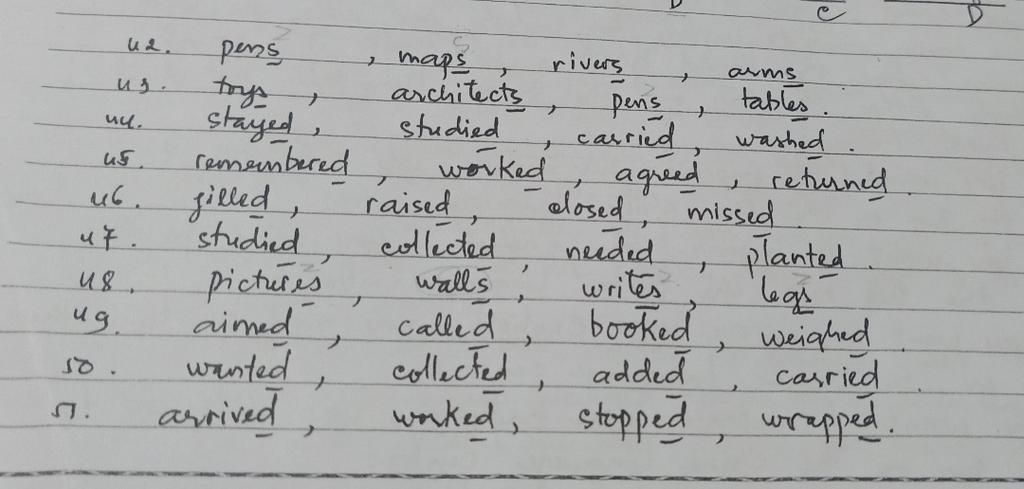 C D
42. pens , maps , rivers , arms
43. toys , architects , pens , tables .
44. stayed , studied , carried , washed .
45 remembered , worked , agreed , returned .
46 . filled , raised , closed , missed
47 . studied , collected , needed , planted .
48 . pictures , walls , writes , legs
49. aimed , called , booked , weighed .
50 . wanted , collected , added , carried .
51. arrived , worked , stopped , wrapped .